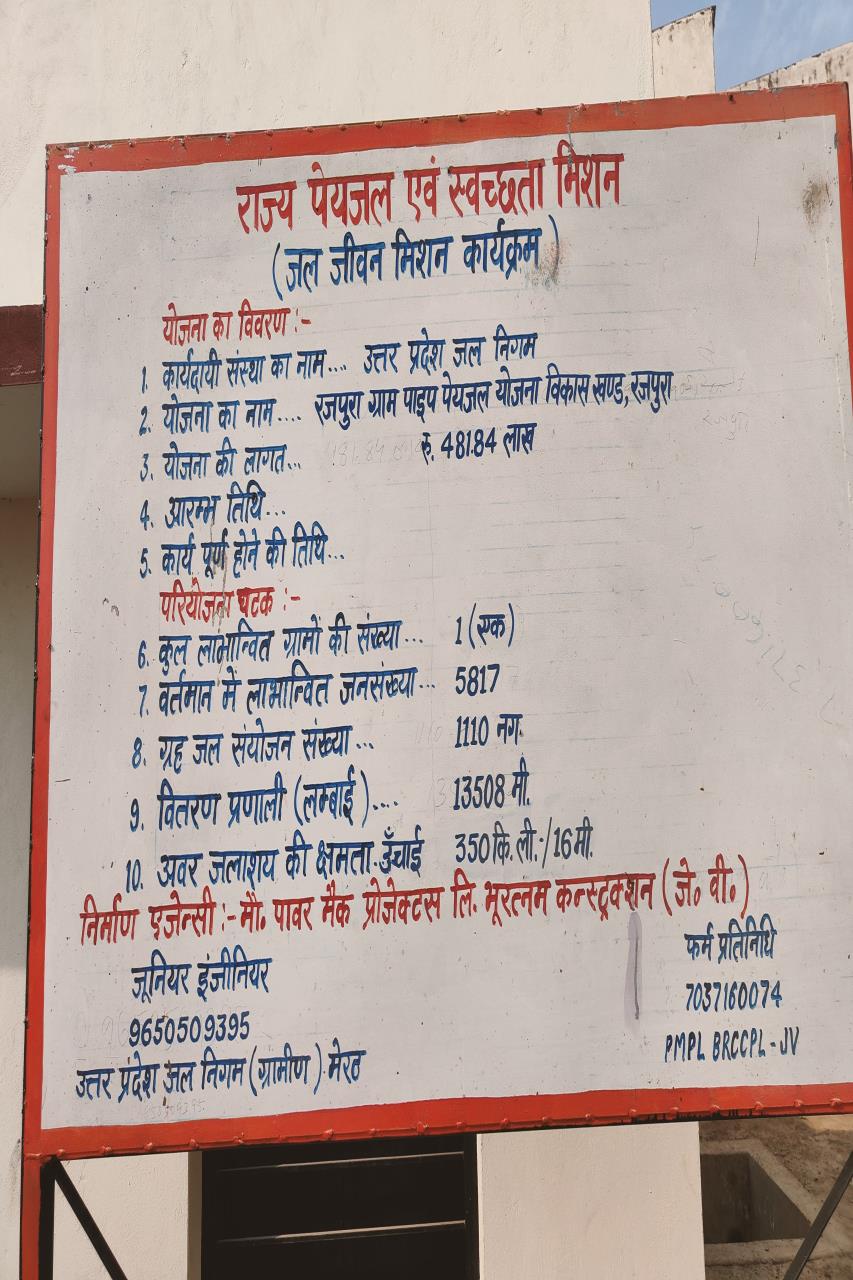 राज्य पेयजल एवं स्वच्छता मिशन
(जल जीवन मिशन कार्यक्रम)
योजना का विवरण :-
1. कार्यदायी संस्था का नाम.... उत्तर प्रदेश जल निगम
2. योजना का नाम.... रजपुरा ग्राम पाइप पेयजल योजना विकास खण्ड, रजपुरा
3. योजना की लागत... रु. 481.84 लाख
4. आरम्भ तिथि...
5. कार्य पूर्ण होने की तिथि...
परियोजना घटक :-
6. कुल लाभान्वित ग्रामों की संख्या... 1 (एक)
7. वर्तमान में लाभान्वित जनसंख्या... 5817
8. ग्रह जल संयोजन संख्या... 1110 नग.
9. वितरण प्रणाली (लम्बाई).... 13508 मी.
10. अवर जलाशय की क्षमता-उँचाई 350 कि.ली.-/16 मी.
निर्माण एजेन्सी :- मौ. पावर मैक प्रोजेक्टस लि. भूरत्नम कन्स्ट्रक्शन (जे० वी०)
जूनियर इंजीनियर
9650509395
उत्तर प्रदेश जल निगम (ग्रामीण) मेरठ
फर्म प्रतिनिधि
7037160074
PMPL BRCCPL - JV